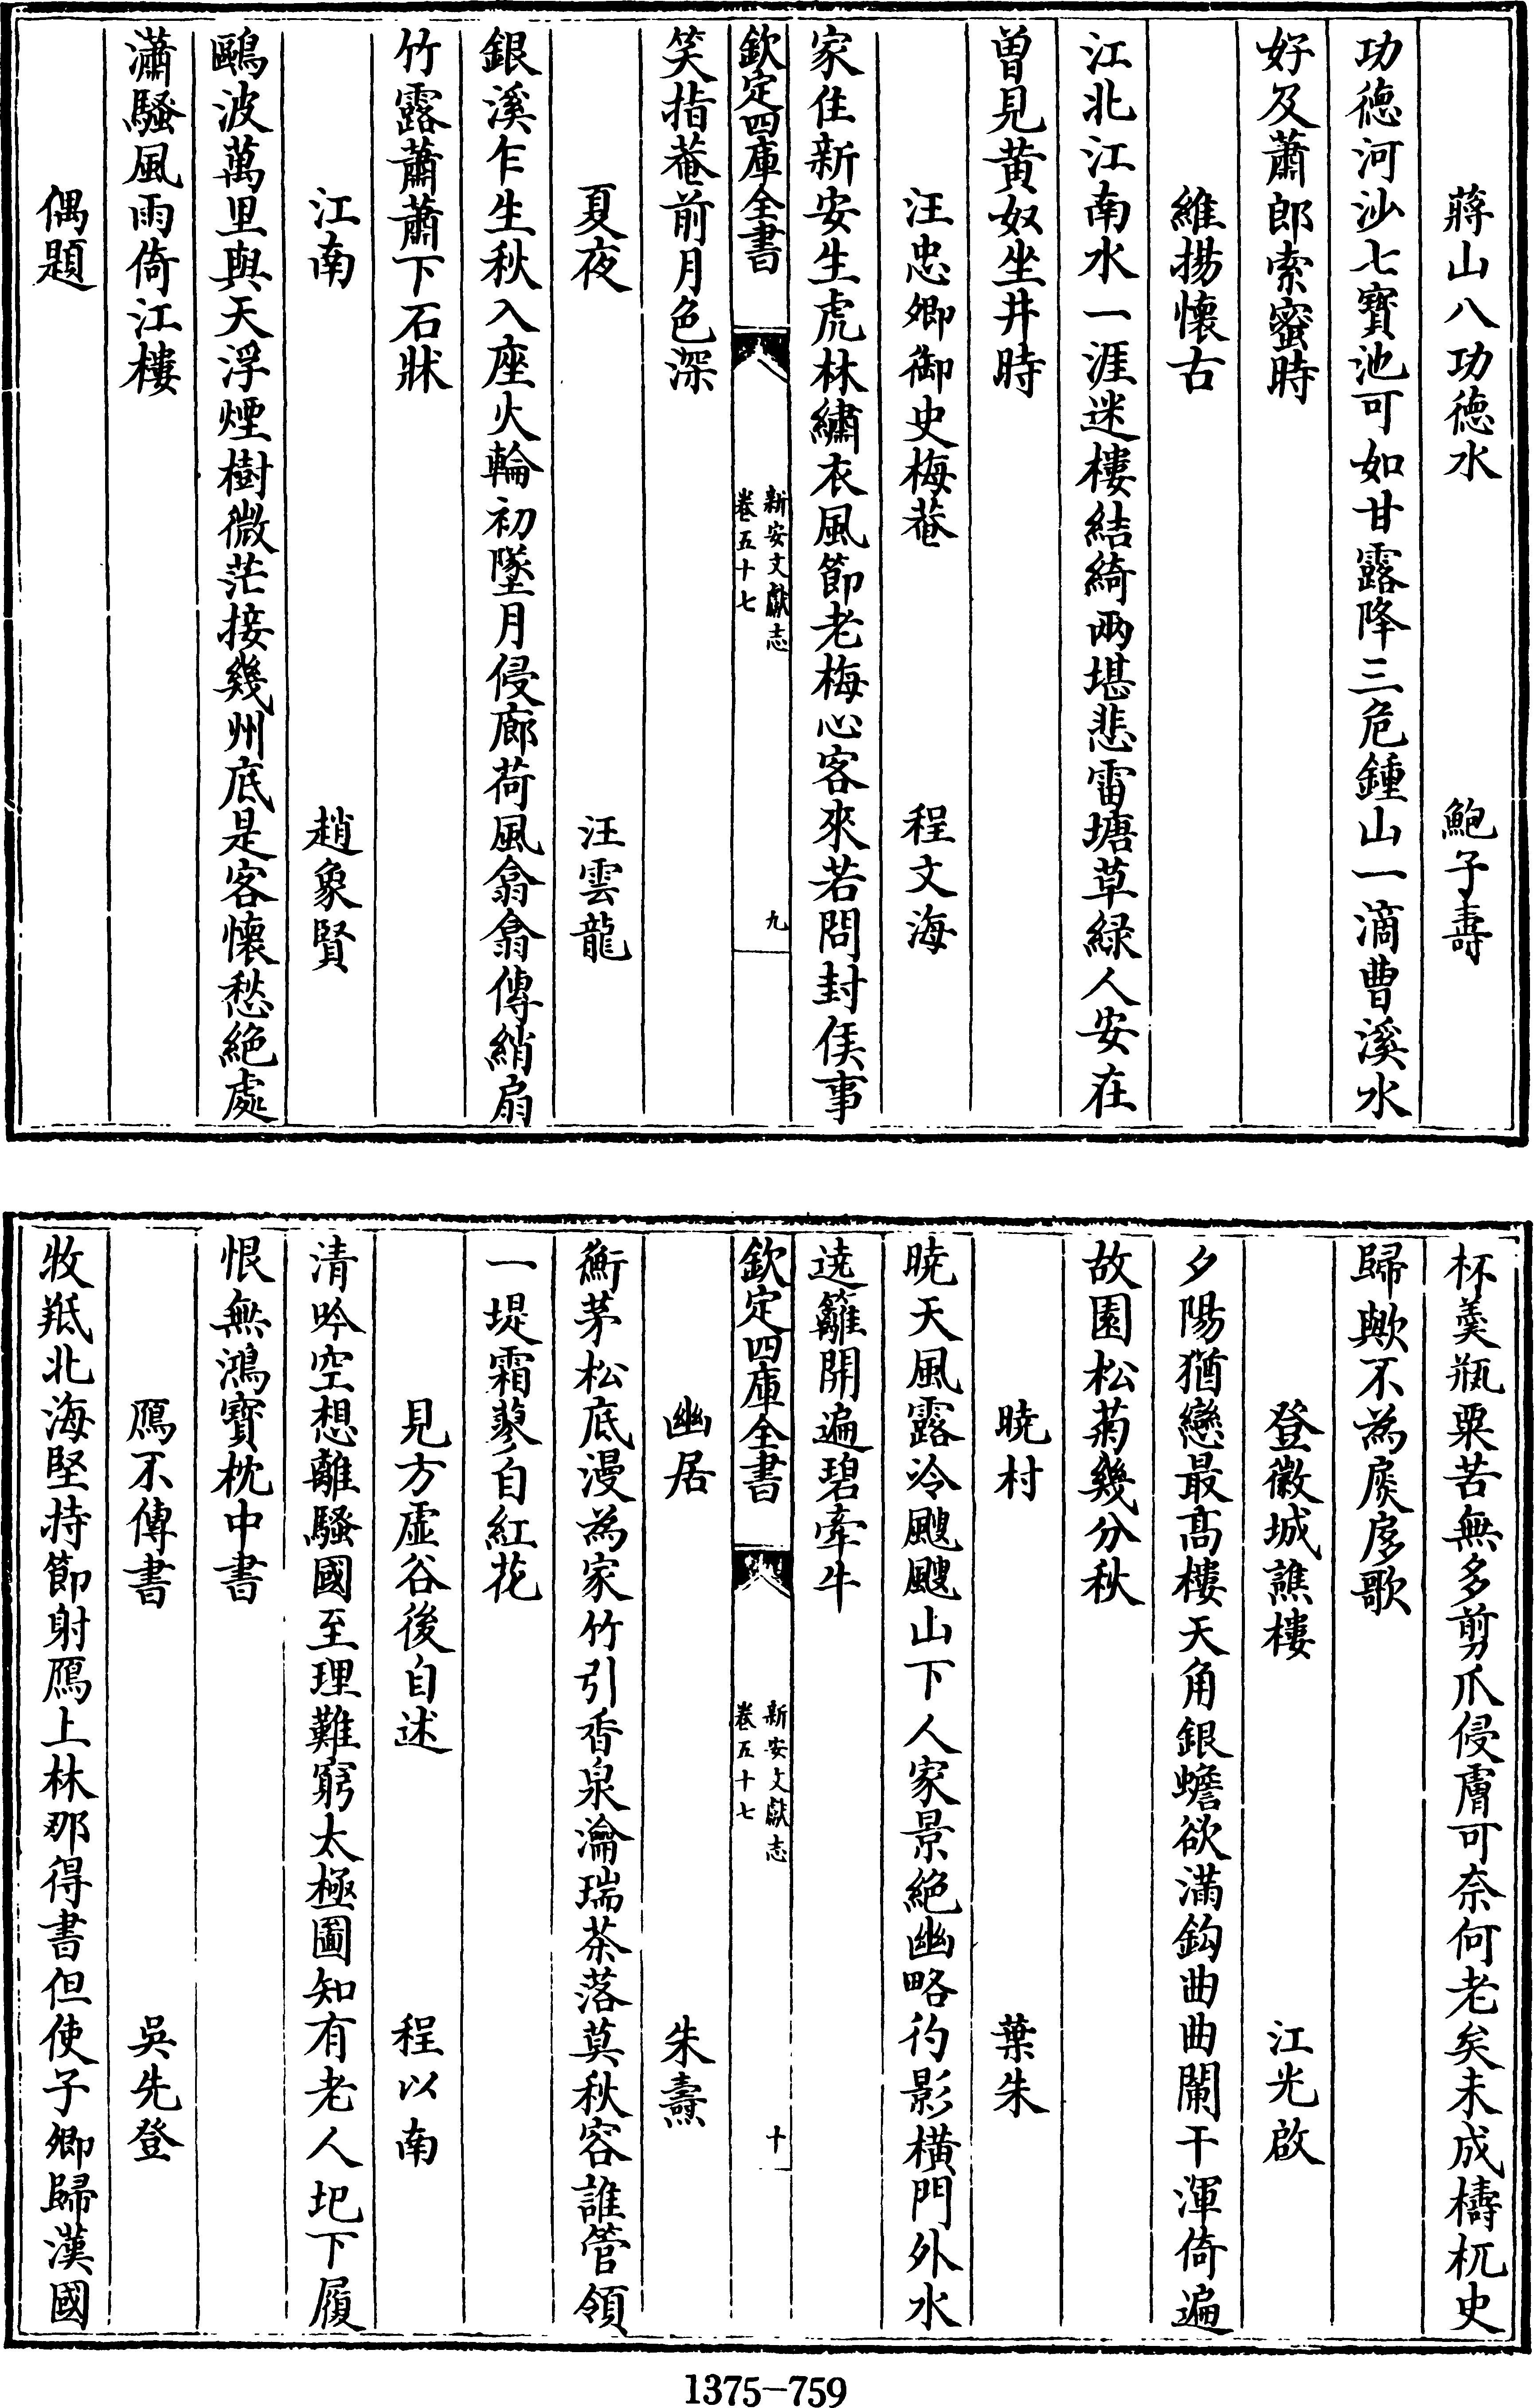 蔣山八功徳水　鮑子壽
功徳河沙七寳池可如甘露降三危鍾山一滴曹溪水
好及蕭郎索蜜時
維揚懷古
江北江南水一涯迷樓結綺兩堪悲雷塘草緑人安在
曽見黄奴坐井時
汪忠卿御史梅菴　程文海
家住新安生虎林繡衣風節老梅心客來若問封侯事
欽定四庫全書　新安文獻志
卷五十七　九
笑指菴前月色深
夏夜　汪雲龍
銀溪乍生秋入座火輪初墜月侵廊荷風翕翕傳綃扇
竹露蕭蕭下石牀
江南　趙象賢
鷗波萬里與天浮煙樹微茫接幾州底是客懷愁絶處
瀟騷風雨倚江樓
偶題
杯羮瓶粟苦無多剪爪侵膚可奈何老矣未成檮杌史
歸歟不為扊扅歌
登徽城譙樓　江光啟
夕陽猶戀最髙樓天角銀蟾欲滿鈎曲曲闌干渾倚遍
故園松菊幾分秋
曉村　葉朱
曉天風露冷颼颼山下人家景絶幽略彴影横門外水
遶籬開遍碧牽牛
欽定四庫全書　新安文獻志
卷五十七　十
幽居　朱燾
衡茅松底漫為家竹引香泉瀹瑞茶落莫秋容誰管領
一堤霜蓼自紅花
見方虚谷後自述　程以南
清吟空想離騷國至理難窮太極圖知有老人圯下履
恨無鴻寳枕中書
鴈不傳書　吳先登
牧羝北海堅持節射鴈上林那得書但使子卿歸漢國
1375-759